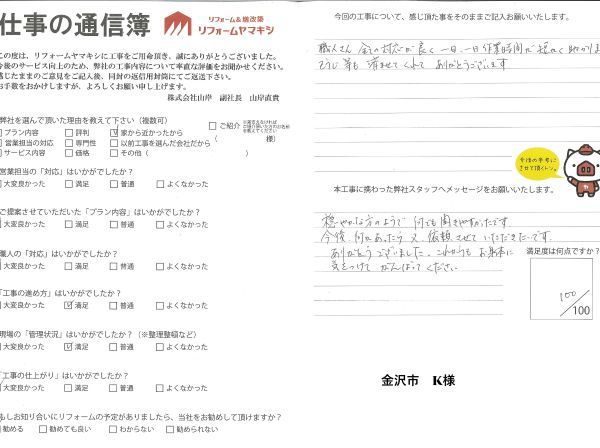 仕事の通信簿
リフォーム&増改築
リフォームヤマキシ
の度は、リフォームヤマキシに工事をご用命頂き、誠にありがとうございました。
今後のサービス向上のため、弊社の工事内容について率直な評価をお聞かせください。
感じたままのご意見をご記入後、同封の返信用封筒にてご返送下さい。
お手数をおかけしますが、よろしくお願い申し上げます。
株式会社山岸 副社長 山岸直貴
弊社を選んで頂いた理由を教えて下さい（複数可）
プラン内容 評判 家から近かったから ご紹介
営業担当の対応 専門性 以前工事を選んだ会社だから （ 様）
サービス内容 価格 その他（ ）
営業担当の「対応」はいかがでしたか？
大変良かった 満足 普通 よくなかった
ご提案させていただいた「プラン内容」はいかがでしたか？
大変良かった 満足 普通 よくなかった
職人の「対応」はいかがでしたか？
大変良かった 満足 普通 よくなかった
「工事の進め方」はいかがでしたか？
大変良かった 満足 普通 よくなかった
現場の「管理状況」はいかがでしたか？（※整理整頓など）
大変良かった 満足 普通 よくなかった
「工事の仕上がり」はいかがでしたか？
大変良かった 満足 普通 よくなかった
もしお知り合いにリフォームの予定がありましたら、当社をお勧めして頂けますか？
勧める 勧めても良い わからない 勧められない
今回の工事について、感じ頂た事をそのままご記入お願いいたします。
職人さん 対応が良く 一日、一日 作業時間が
済ませてくれて ありがとうございます
今後の参考に
させて頂くトン。
本工事に携わった弊社スタッフへメッセージをお願いいたします。
穏やかな方のようで 何でも聞きやすかったです
今後 何かあったら 又 依頼させていただきたいです
ありがとうございました。これからも お身体に
気をつけて がんばってください
満足度は何点ですか？
100
/100
金沢市 K様